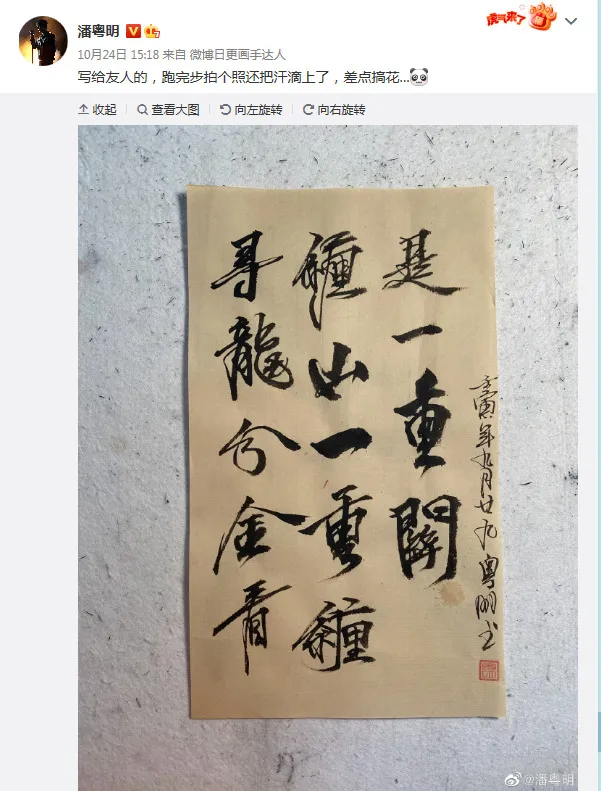 潘粤明
虎气来了
10月24日 15:18 来自 微博日更画手达人
写给友人的，跑完步拍个照还把汗滴上了，差点搞花...
收起
查看大图
向左旋转
向右旋转
尋龍分金看
纏山一重纏
是一重關
壬寅年九月廿九 粤明书
@潘粤明